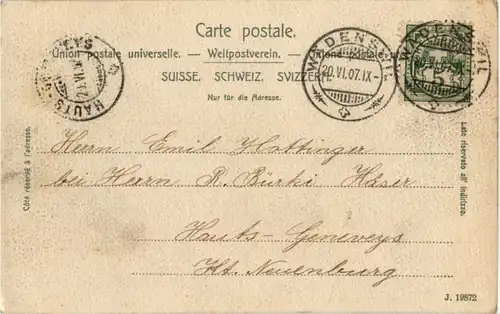 Carte postale.
Union postale universelle. — Weltpostverein. — Unione postale universale.
SUISSE. SCHWEIZ. SVIZZERA.
Nur für die Adresse.
HAUTS-GENEVEYS
WÄDENSWIL
20.VI.07.IX-
WÄDENSWIL
20.VI.07.
5
Côté réservé à l'adresse.
Lato riservato all' indirizzo.
Herrn Emil Hottinger
bei Herrn R. Bürki Käser
Hauts-Geneveys
Kt. Neuenburg
J. 19872